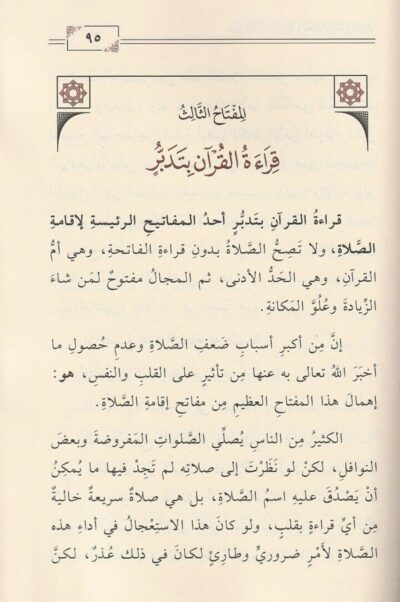 ٩٥
المفتاح الثالث
قِرَاءَةُ القُرْآنِ بِتَدَبُّرٍ
قراءةُ القرآنِ بتَدبُّرٍ أحدُ المفاتيحِ الرئيسةِ لإقامةِ
الصَّلاةِ، ولا تَصِحُّ الصَّلاةُ بدونِ قراءةِ الفاتحةِ، وهي أمُّ
القرآنِ، وهي الحَدُّ الأدنى، ثم المجالُ مفتوحٌ لمَن شاءَ
الزِّيادةَ وعُلُوَّ المَكانةِ.
إنَّ مِن أكبرِ أسبابِ ضَعفِ الصَّلاةِ وعدمِ حُصولِ ما
أخبَرَ اللهُ تعالى به عنها مِن تأثيرٍ على القلبِ والنفسِ، هو:
إهمالَ هذا المفتاحِ العظيمِ مِن مفاتحِ إقامةِ الصَّلاةِ.
الكثيرُ مِن الناسِ يُصلِّي الصَّلواتِ المَفروضةَ وبعضَ
النوافلِ، لكنْ لو نَظَرْتَ إلى صلاتِه لم تَجِدْ فيها ما يُمكِنُ
أنْ يَصْدُقَ عليهِ اسمُ الصَّلاةِ، بل هي صلاةٌ سريعةٌ خاليةٌ
مِن أيِّ قراءةٍ بقلبٍ، ولو كانَ هذا الاستِعْجالُ في أداءِ هذه
الصَّلاةِ لأَمْرٍ ضروريٍّ وطارِئٍ لكانَ في ذلك عُذرٌ، لكنَّ